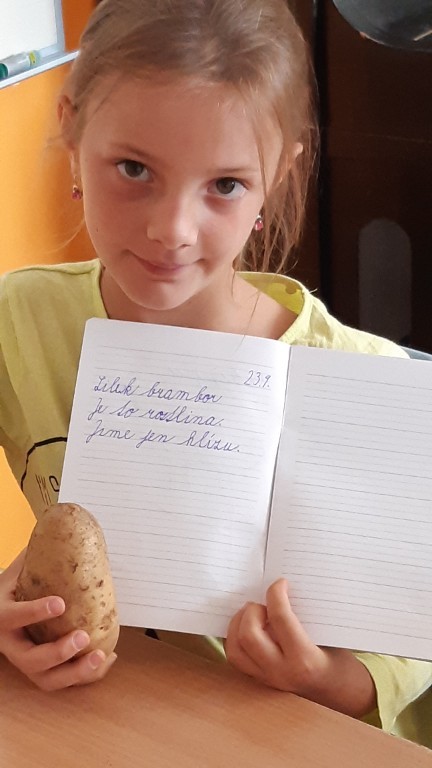 23.9.
Lilek brambor
Je to rostlina.
Jíme jen hlízu.